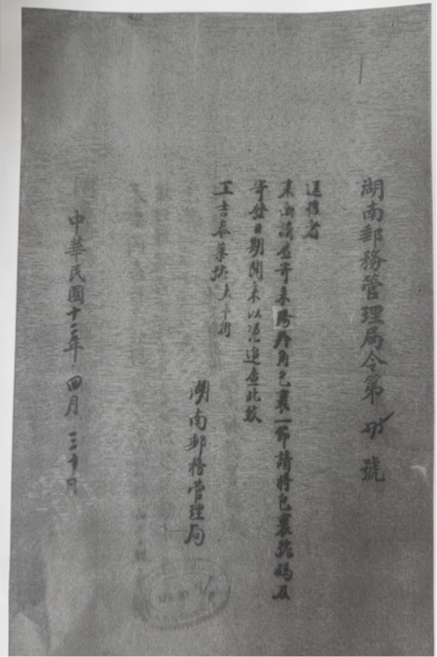 湖南郵務管理局令第 號
逕復者
來函請查寄來 角包裹一節請將包裹號碼及
寄發日期開來以憑追查此致
王吉春
湖南郵務管理局
中華民國十二年四月三十日